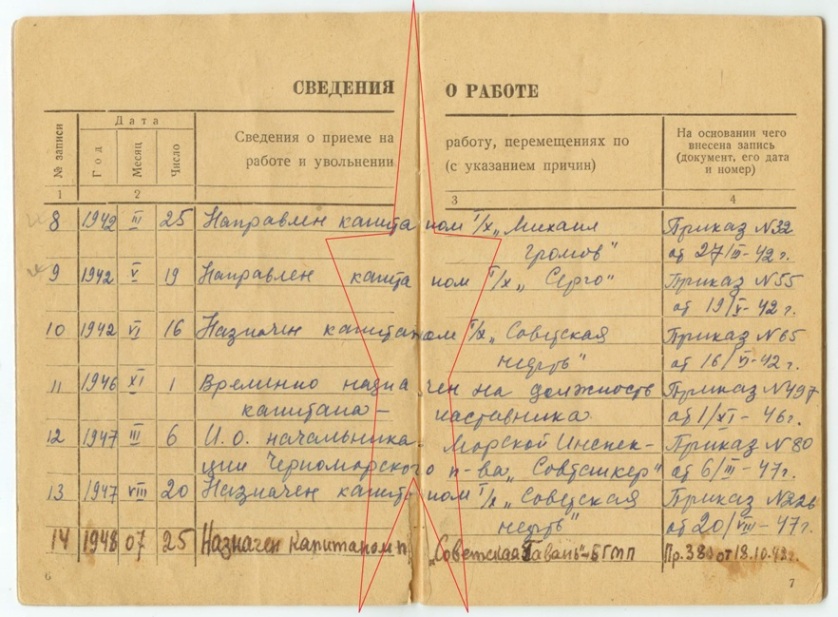 СВЕДЕНИЯ О РАБОТЕ
№ записи
Дата
Год
Месяц
Число
Сведения о приеме на работу, перемещениях по
работе и увольнении (с указанием причин)
На основании чего
внесена запись
(документ, его дата
и номер)
1 2 3 4
8 1942 III 25 Направлен капитаном т/х „Михаил Приказ N32
Громов" от 27/III-42 г.
9 1942 V 19 Направлен капитаном т/х „Серго" Приказ N55
от 19/V-42 г.
10 1942 VI 16 Назначен капитаном т/х „Советская Приказ N65
нефть" от 16/VI-42 г.
11 1946 XI 1 Временно назначен на должность Приказ N497
капитана – наставника. от 1/XI-46 г.
12 1947 III 6 И.О. начальника Морской Инспек- Приказ N80
ции Черноморского п-ва „Совтанкер" от 6/III-47 г.
13 1947 VIII 20 Назначен капитаном т/х „Советская Приказ N226
нефть" от 20/VIII-47 г.
14 1948 07 25 Назначен капитаном „Советская Гавань"-БГМП Пр. 380 от 18.10.48 г.
6 7